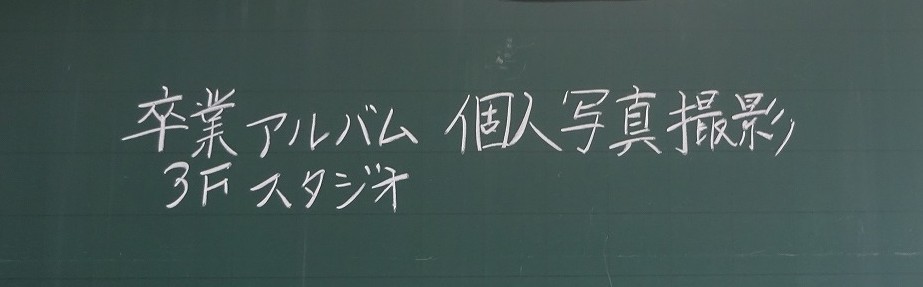 卒業アルバム 個人写真撮影
3F スタジオ